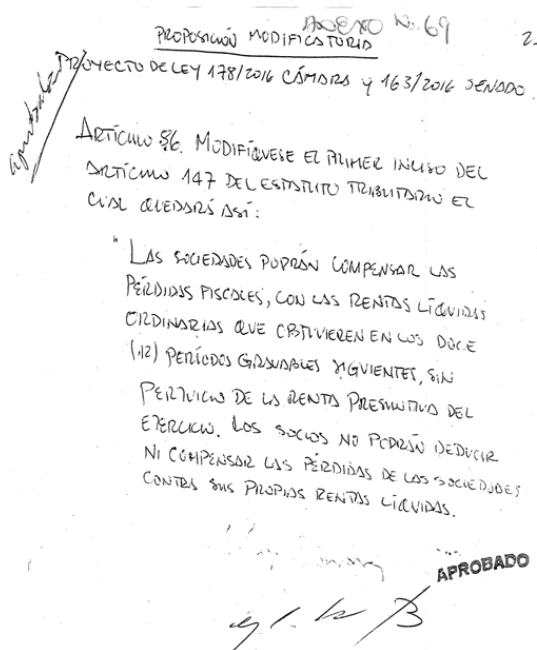 ANEXO No. 69
2.
PROPOSICIÓN MODIFICATORIA
aprobada
PROYECTO DE LEY 178/2016 CÁMARA y 163/2016 SENADO.
ARTÍCULO 86. MODIFÍQUESE EL PRIMER INCISO DEL
ARTÍCULO 147 DEL ESTATUTO TRIBUTARIO EL
CUAL QUEDARÁ ASÍ:
" LAS SOCIEDADES PODRÁN COMPENSAR LAS
PÉRDIDAS FISCALES, CON LAS RENTAS LÍQUIDAS
ORDINARIAS QUE OBTUVIEREN EN LOS DOCE
(12) PERÍODOS GRAVABLES SIGUIENTES, SIN
PERJUICIO DE LA RENTA PRESUNTIVA DEL
EJERCICIO. LOS SOCIOS NO PODRÁN DEDUCIR
NI COMPENSAR LAS PÉRDIDAS DE LAS SOCIEDADES
CONTRA SUS PROPIAS RENTAS LÍQUIDAS.
APROBADO